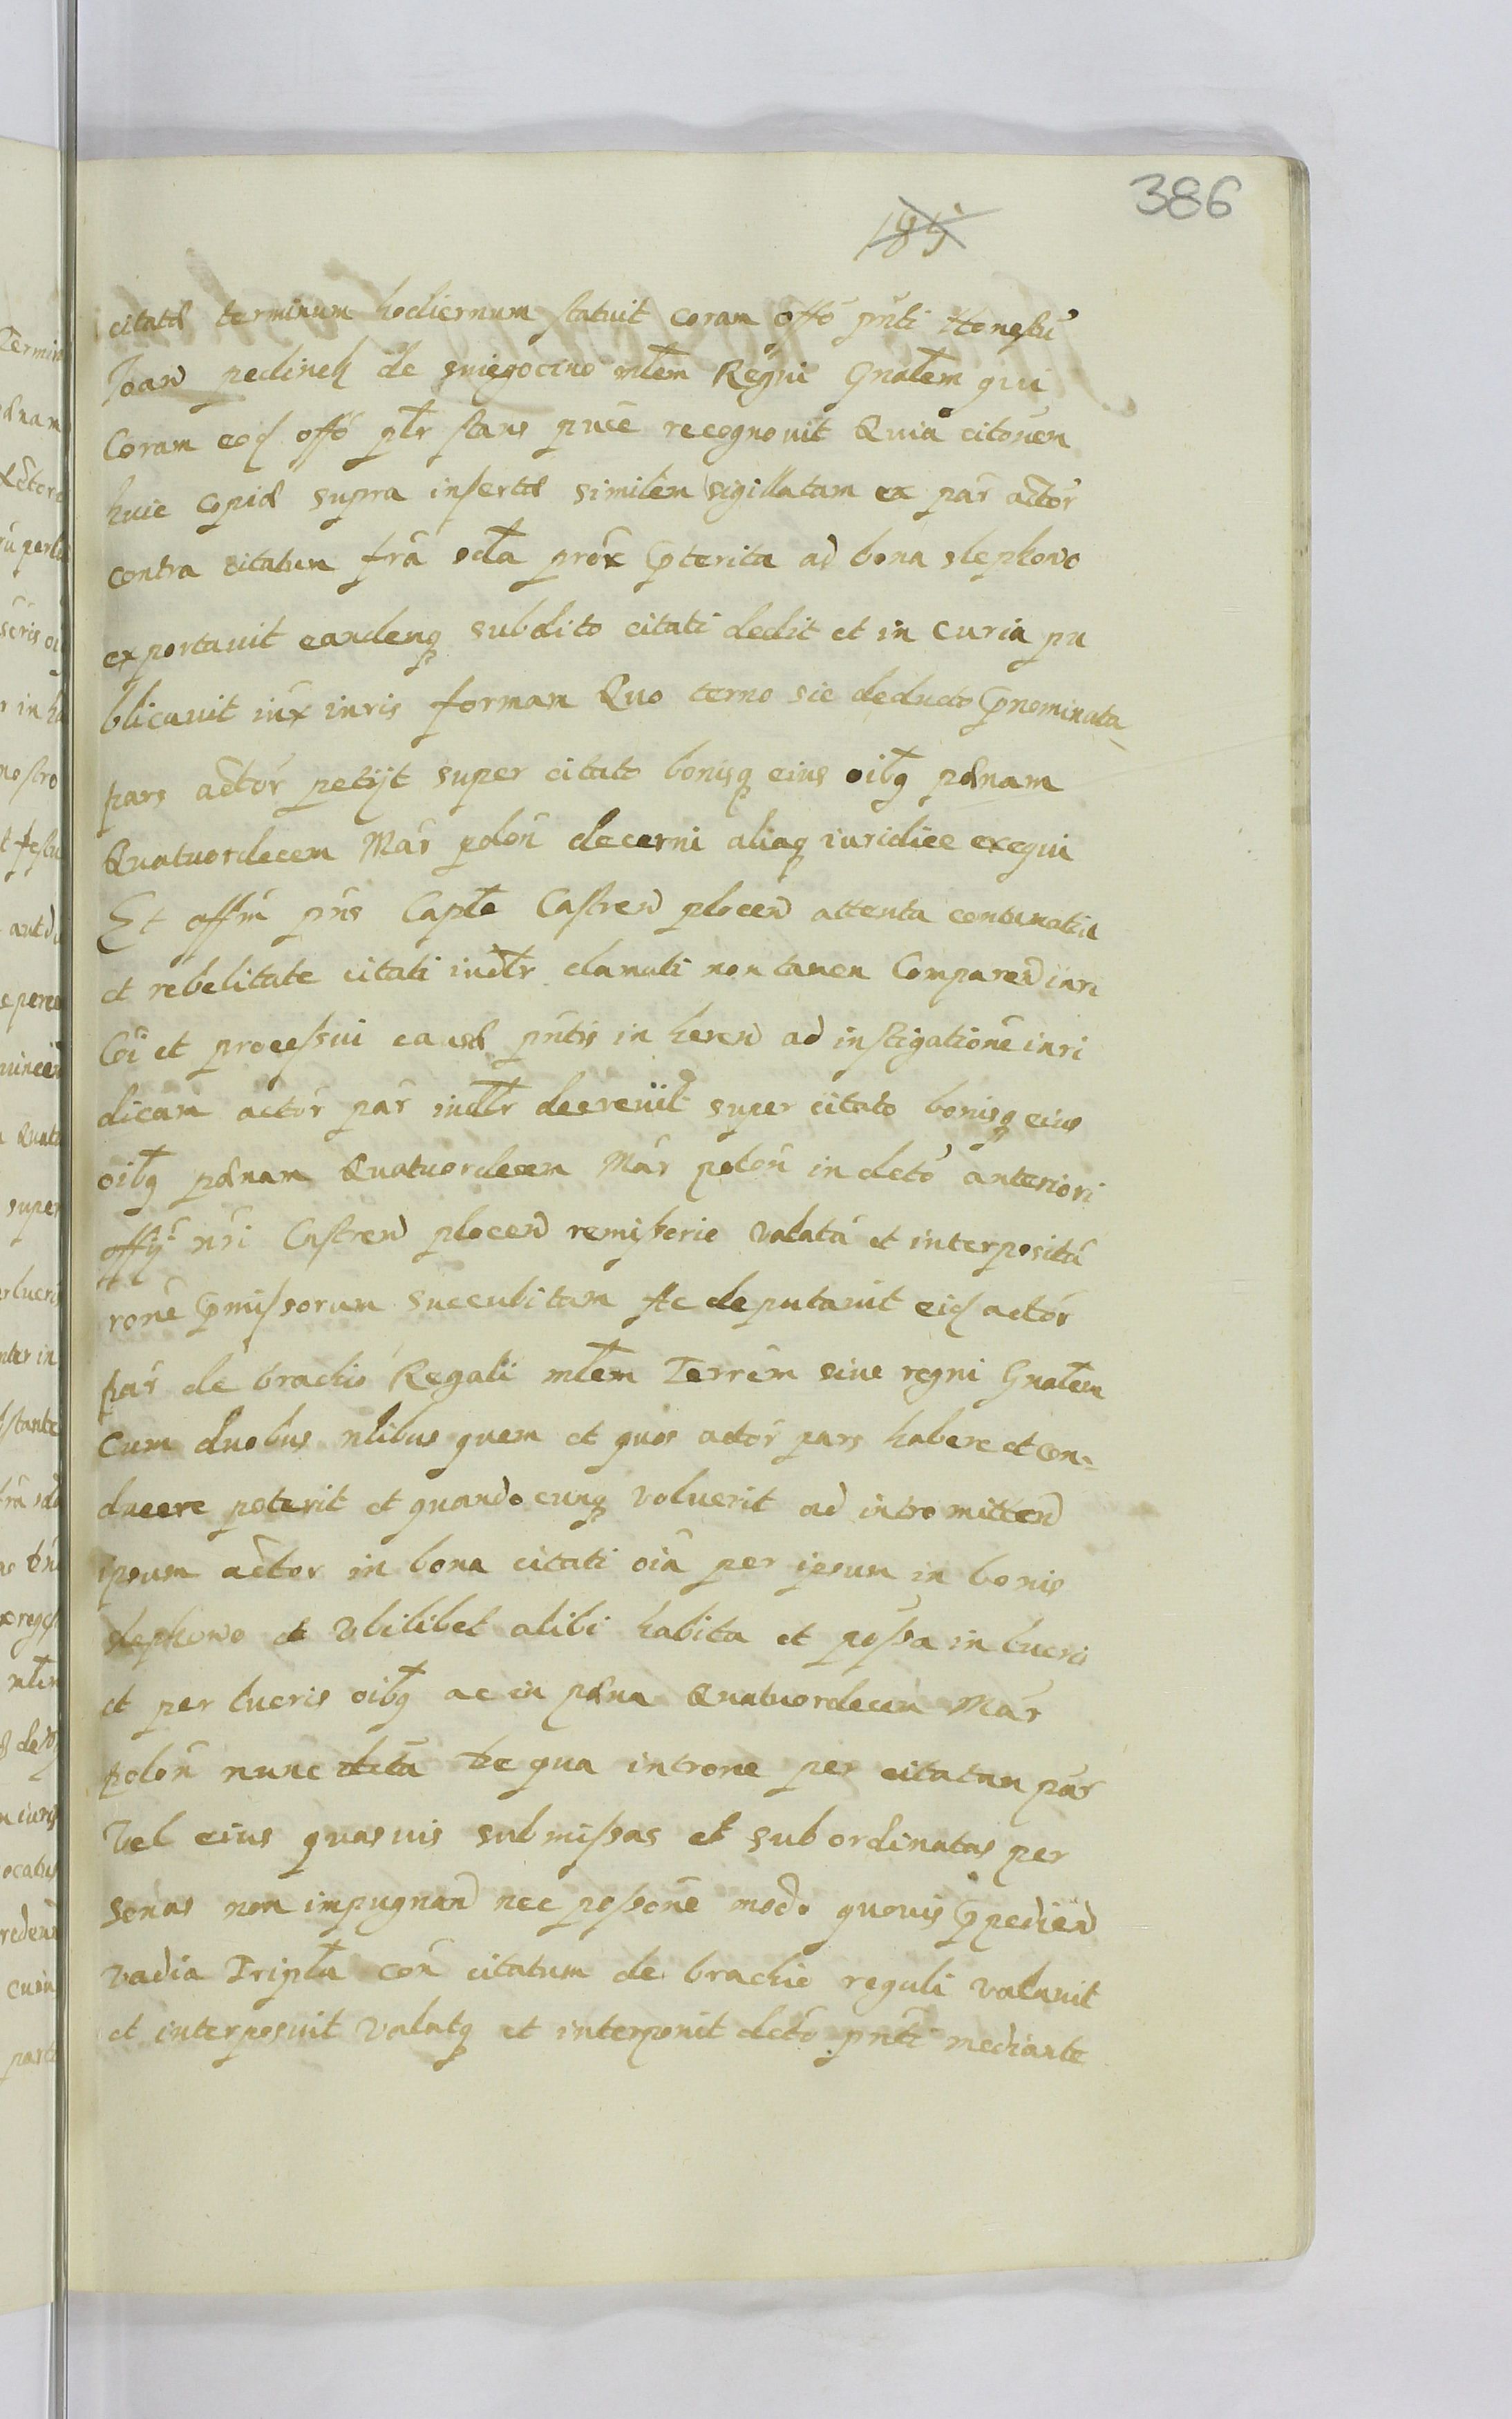 386
185
citatæ terminum hodiernum statuit coram offō pn̄ti Honestū
Joan̄ pedinek de sniegocino ml̄em Regni Gnal̄em qui
Coram eod offō pl̄r stans puce recognouit Quia citōnem
huic copiæ supra insertæ similem sigillatam ex par actōr
contra citatum fr̄a scl̄a prox p̄terita ad bona slepkowo
exportauit eandemq subdito citati dedit et in curia pu
blicauit iux iuris formam Quo termo sic deducto p̄nominata
pars actōr petijt super citato bonisq eius oib9 pœnam
Quatuordecem Mār polōn decerni aliaq iuridice exequi
Et offm̄ pn̄s Capl̄e Castren̄ plocen̄ attenta contumatia
et rebelitate citati iudl̄r clamati non tamen Comparen̄ iuri
Cōi et processui causæ pn̄tis in heren̄ ad instigationē iuri
dicam actōr pār iudl̄r decreuit super citato bonisq eius
oib9 pœnam Quatuordecem Mār polōn in decto anteriori
offij nr̄i Castren̄ plocen̄ remissorie valatā et interpositā
rōne p̄missorum succubitam Ac deputauit eid actōr
pār de brachio Regali ml̄em Terrēm siue regni Gnal̄em
cum duobus nl̄ibus quem et quos actōr pars habere et con-
ducere poterit et quandocunq voluerit ad intromitten̄
ipsum actōr in bona citati oīa per ipsum in bonis
slepkowo et Vbilibet alibi habita et possa in lucris
et per lucris oib9 ac in pœna Quatuordecem Mār
polōn nunc dictā de qua introne per citatum pār
Vel eius quasuis submissas et subordinatas per
sonas non impugnan̄ nec possōne modo quouis p̄pedien̄
vadia Tripl̄a con̄ citatum de brachio regali valauit
et interposuit valatq et interponit dctō pn̄ti mediante